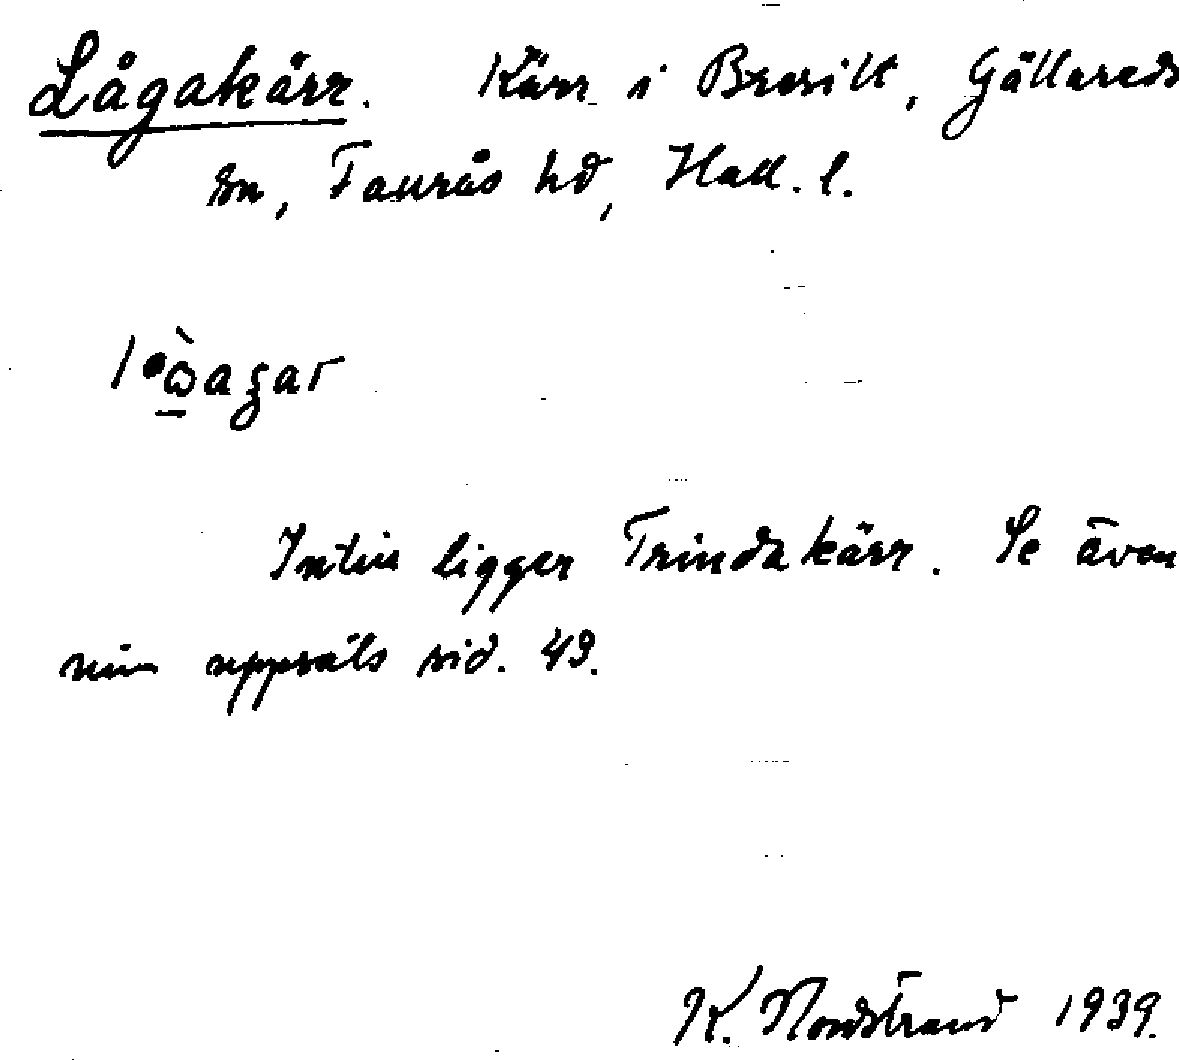 Lågakärr. Kärr i Brosilt, Gällareds
sn, Faurås hd, Hall. l.
Intill ligger Trindakärr. Se även
min uppsats sid. 49.
K. Nordstrand 1939.